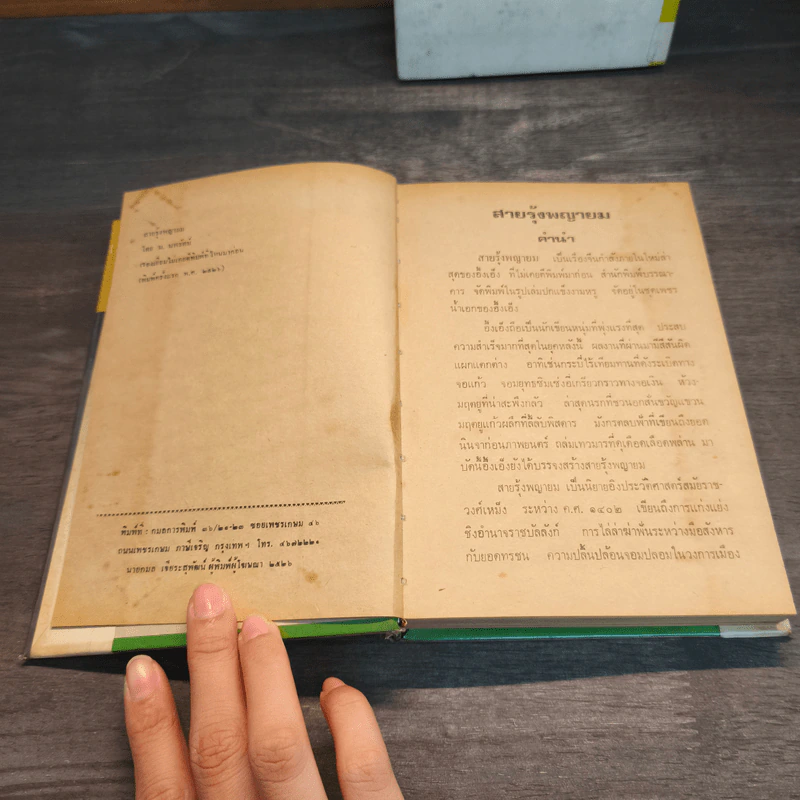 สายรุ้งพญายม
โดย น. นพรัตน์
(พิมพ์ครั้งแรก พ.ศ. ๒๕๒๖)
พิมพ์ที่ : กมลการพิมพ์ ๓๖/๒๑-๒๓ ซอยเพชรเกษม ๔๖
ถนนเพชรเกษม ภาษีเจริญ กรุงเทพฯ โทร. ๔๖๗๒๒๒๑
นายกมล เจียระสุพัฒน์ ผู้พิมพ์ผู้โฆษณา ๒๕๒๖
สายรุ้งพญายม
คำนำ
สายรุ้งพญายม เป็นเรื่องจีนกำลังภายในใหม่ล่า
สุดของอึ้งเอ็ง ที่ไม่เคยตีพิมพ์มาก่อน สำนักพิมพ์บรรณา-
คาร จัดพิมพ์ในรูปเล่มปกแข็งงามหรู จัดอยู่ในชุดเพชร
น้ำเอกของอึ้งเอ็ง
อึ้งเอ็งถือเป็นนักเขียนหนุ่มที่พุ่งแรงที่สุด ประสบ
ความสำเร็จมากที่สุดในยุคหลังนี้ ผลงานที่ผ่านมามีสีสันผิด
แผกแตกต่าง อาทิเช่นกระบี่ไร้เทียมทานที่ดังระเบิดทาง
จอแก้ว จอมยุทธชิมเซ่งอีเกรียวกราวทางจอเงิน ห้วง-
มฤตยูที่น่าสะพึงกลัว ล่าสุดนรกที่ชวนอกสั่นขวัญแขวน
มฤตยูแก้วผลึกที่ลี้ลับพิสดาร มังกรตลบฟ้าที่เขียนถึงยอด
นินจาก่อนภาพยนตร์ ถล่มเทวมารที่ดุเดือดเลือดพล่าน มา
บัดนี้อึ้งเอ็งยังได้บรรจงสร้างสายรุ้งพญายม
สายรุ้งพญายม เป็นนิยายอิงประวัติศาสตร์สมัยราช-
วงศ์เหม็ง ระหว่าง ค.ศ. ๑๔๐๒ เขียนถึงการแก่งแย่ง
ชิงอำนาจราชบัลลังก์ การไล่ล่าฆ่าฟันระหว่างมือสังหาร
กับยอดทรชน ความปลิ้นปล้อนจอมปลอมในวงการเมือง